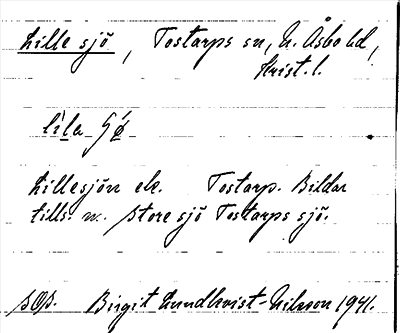 Lille sjö, Tostarps sn, N. Åsbo hd,
Krist. l.
lìla ʃǿ
Lillesjön el. Tostarp. Bildar
tills. m. Store sjö Tostarps sjö.
SOS. Birgit Lundkvist-Nilsson 1941.